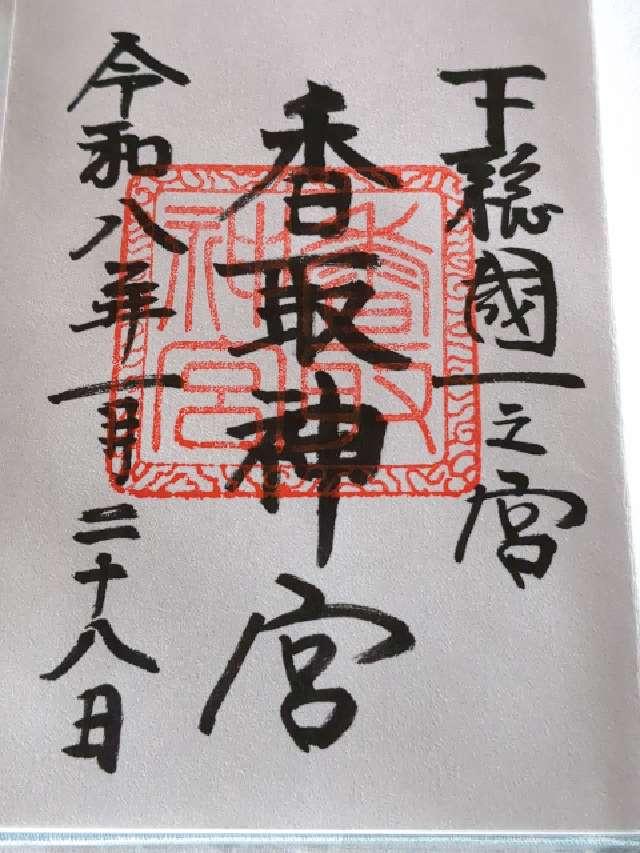 下総國一之宮
香取神宮
令和八年一月二十八日
香取神宮